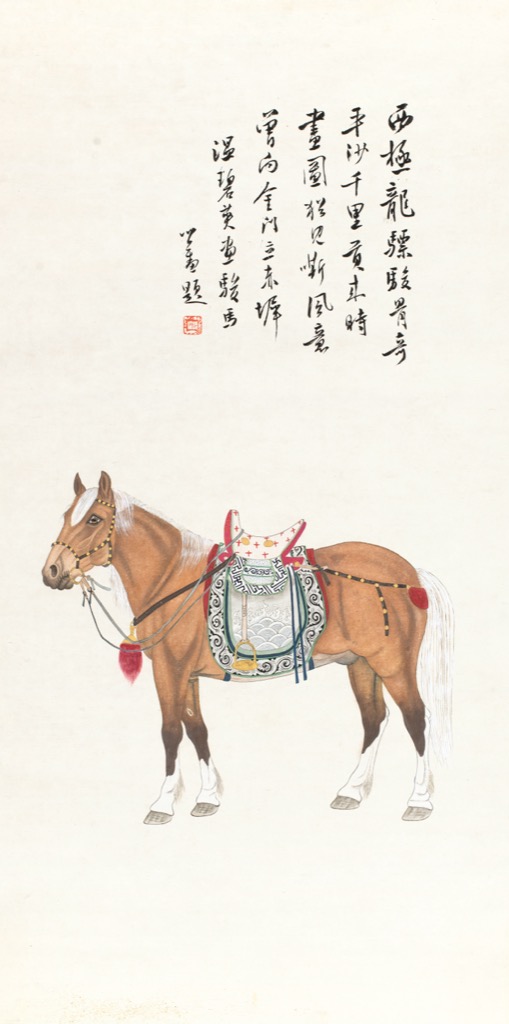 西極龍驃駿骨奇
平沙千里貢來時
畫圖猶見嘶風意
曾向金門立赤墀
温碧英畫駿馬
心畬題